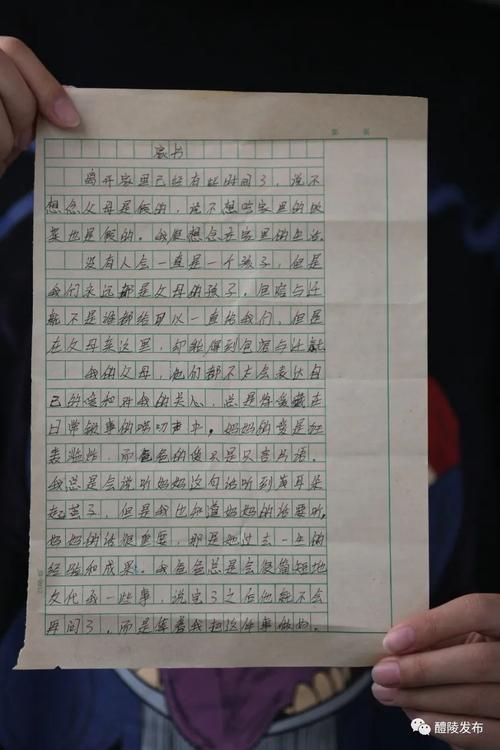 第 页
家书
离开家里已经有些时间了，说不
想念父母是假的，说不想吃家里的饭
菜也是假的。我很想念在家里的生活。
没有人会一直是一个孩子，但是
我们永远都是父母的孩子，包容与迁
就不是谁都给可以一直给我们，但是
在父母亲这里，却能得到包容与迁就。
我的父母，他们都不太会表达自
己的爱和对我的关心，总是将爱藏在
日常琐事的唠叨声中。妈妈的爱是
，而爸爸的爱只是只言片语。
我总是会说听妈妈这句话听到茧耳朵
起茧子，但是我也知道妈妈的话要听，
妈妈的话很重要，那是她过去一年的
经验和成果。我爸爸总是会很简短地
交代我一些事，说完了之后他就不会
再问了，而是等着我把这件事做好。
醴陵发布